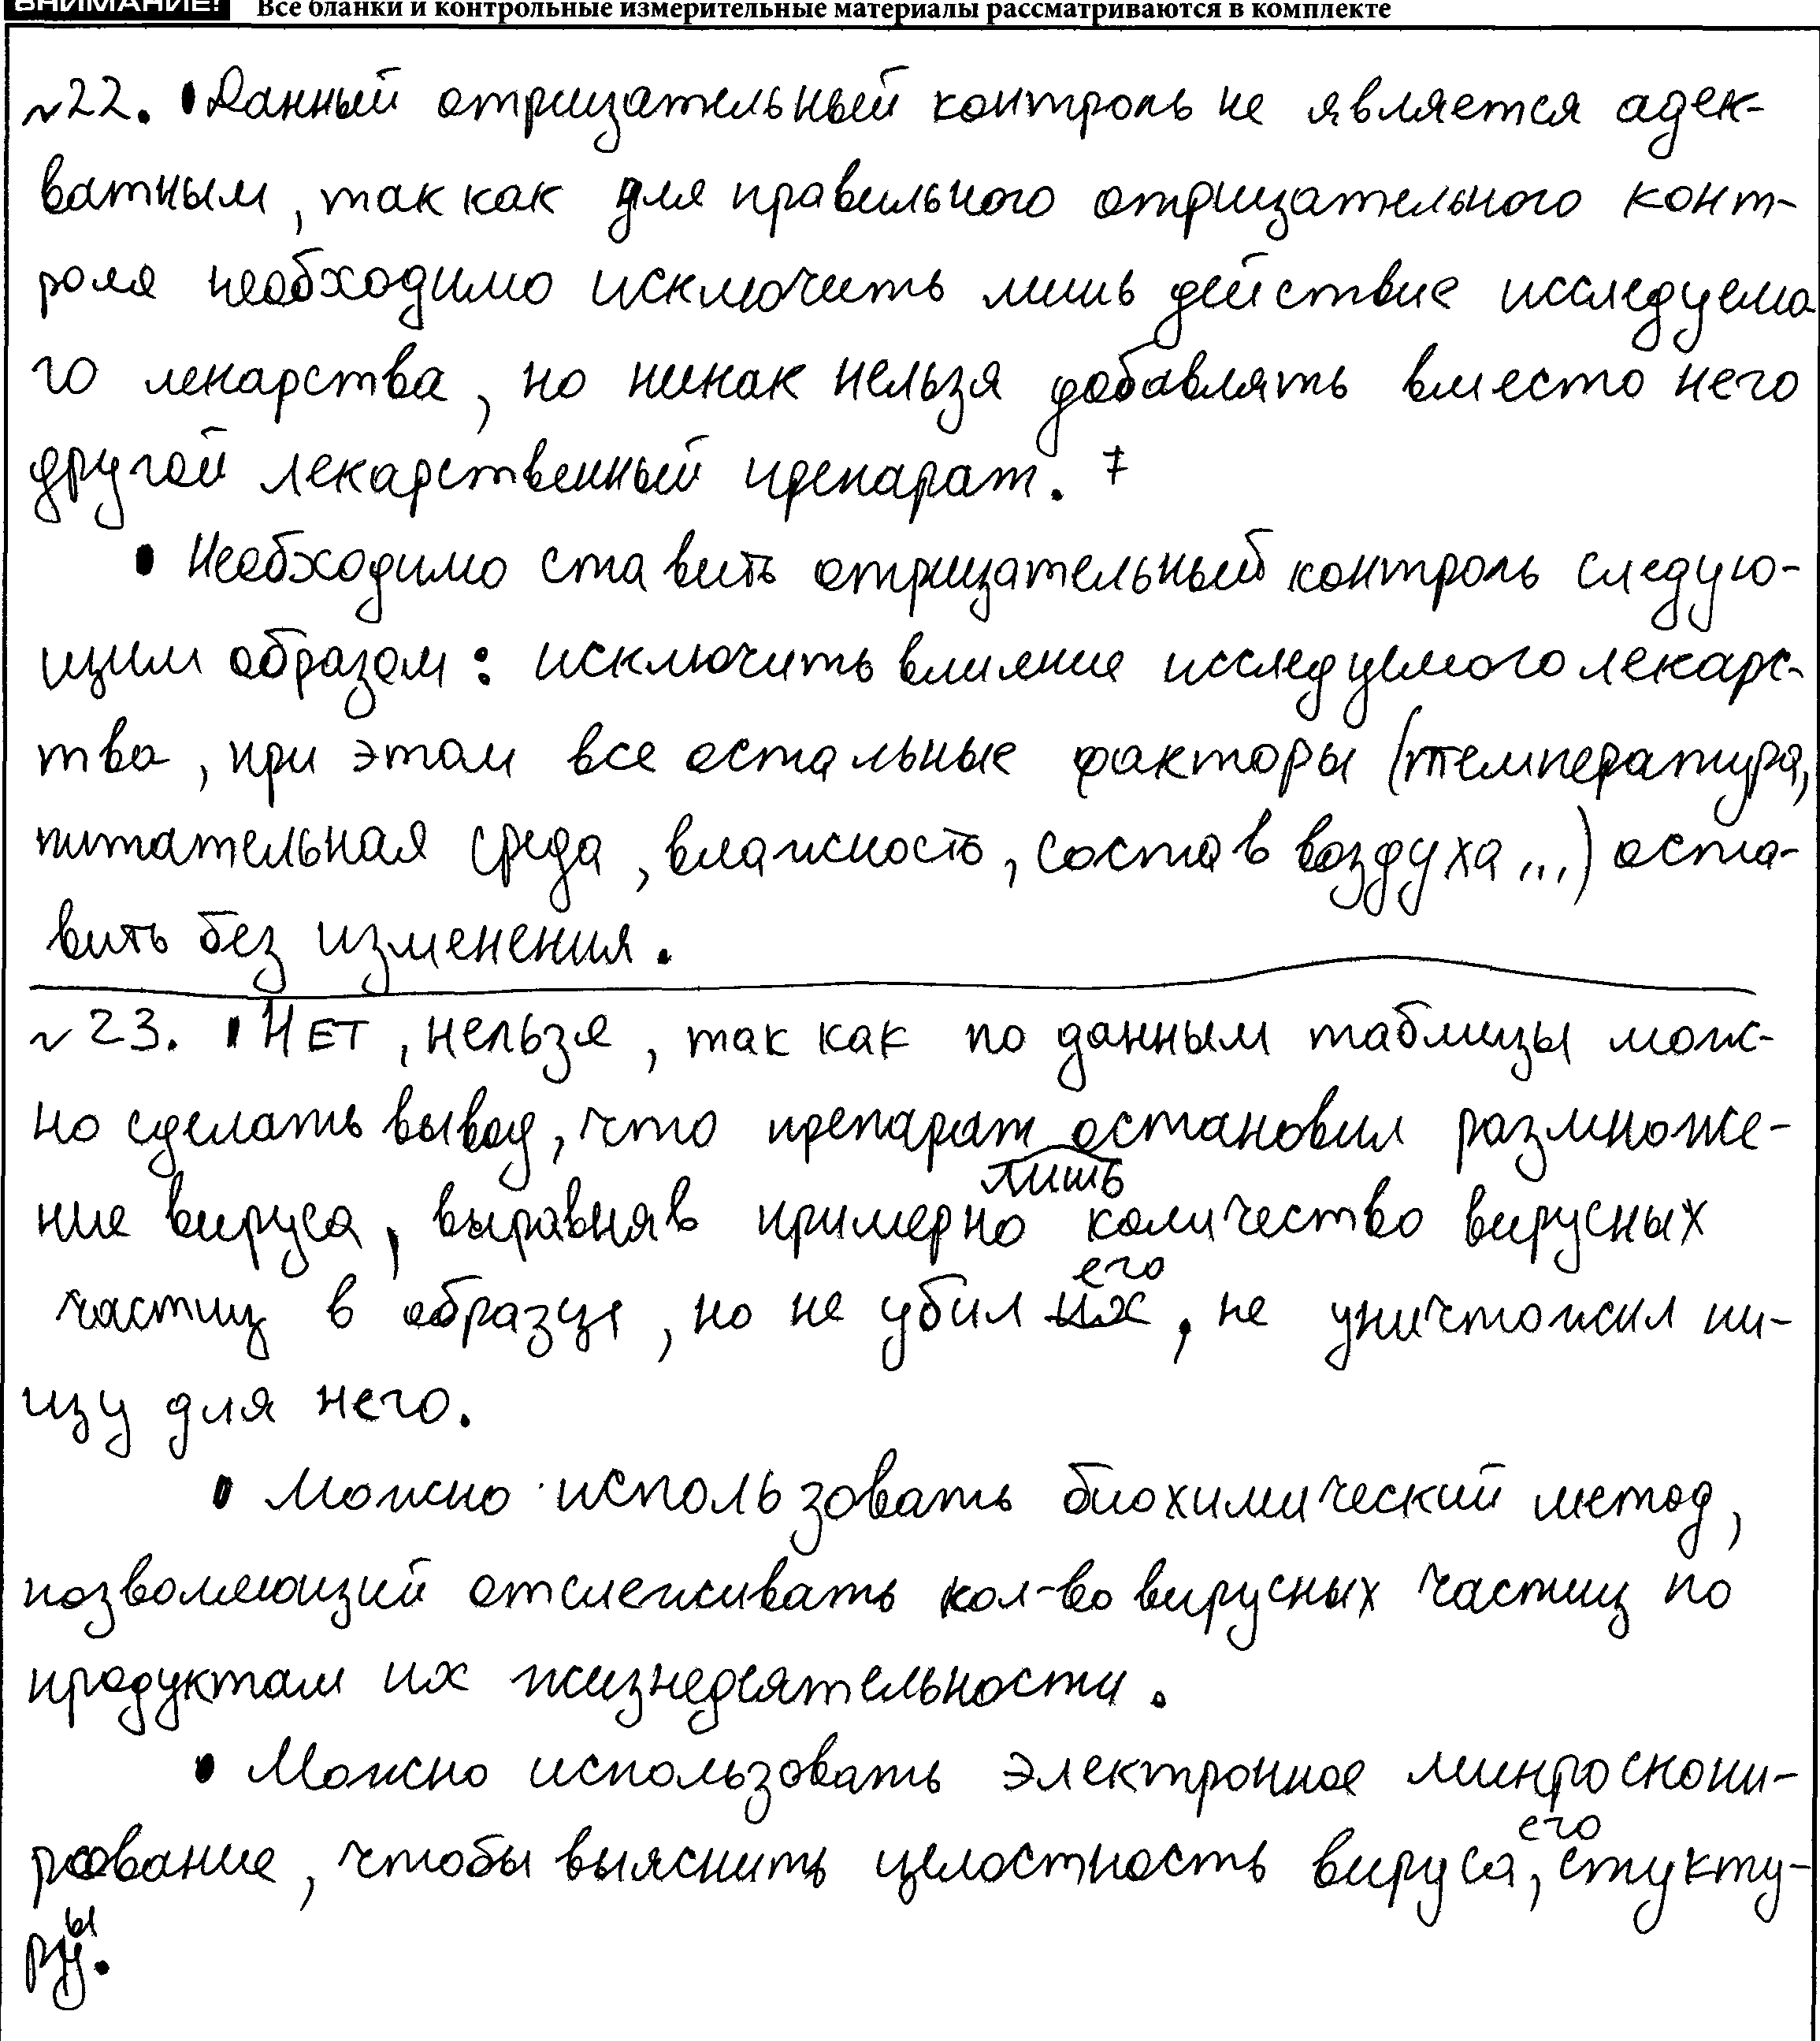 ВНИМАНИЕ! Все бланки и контрольные измерительные материалы рассматриваются в комплекте
№22. • Данный отрицательный контроль не является адек-
ватным, так как для правильного отрицательного конт-
роля необходимо исключить лишь действие исследуемо
го лекарства, но никак нельзя добавлять вместо него
другой лекарственный препарат.
• Необходимо ставить отрицательный контроль следую-
щим образом: исключить влияние исследуемого лекарс-
тва, при этом все остальные факторы (температура,
питательная среда, влажность, состав воздуха...) оста-
вить без изменения.
№23. • НЕТ, нельзя, так как по данным таблицы мож-
но сделать вывод, что препарат остановил размноже-
лишь
ние вируса, выравняв примерно количество вирусных
его
частиц в образце, но не убил их, не уничтожил ни-
щу для него.
• Можно использовать биохимический метод,
позволяющий отслеживать кол-во вирусных частиц по
продуктам их жизнедеятельности.
• Можно использовать электронное микроскопи-
его
рование, чтобы выяснить целостность вируса, стукту-
ры.